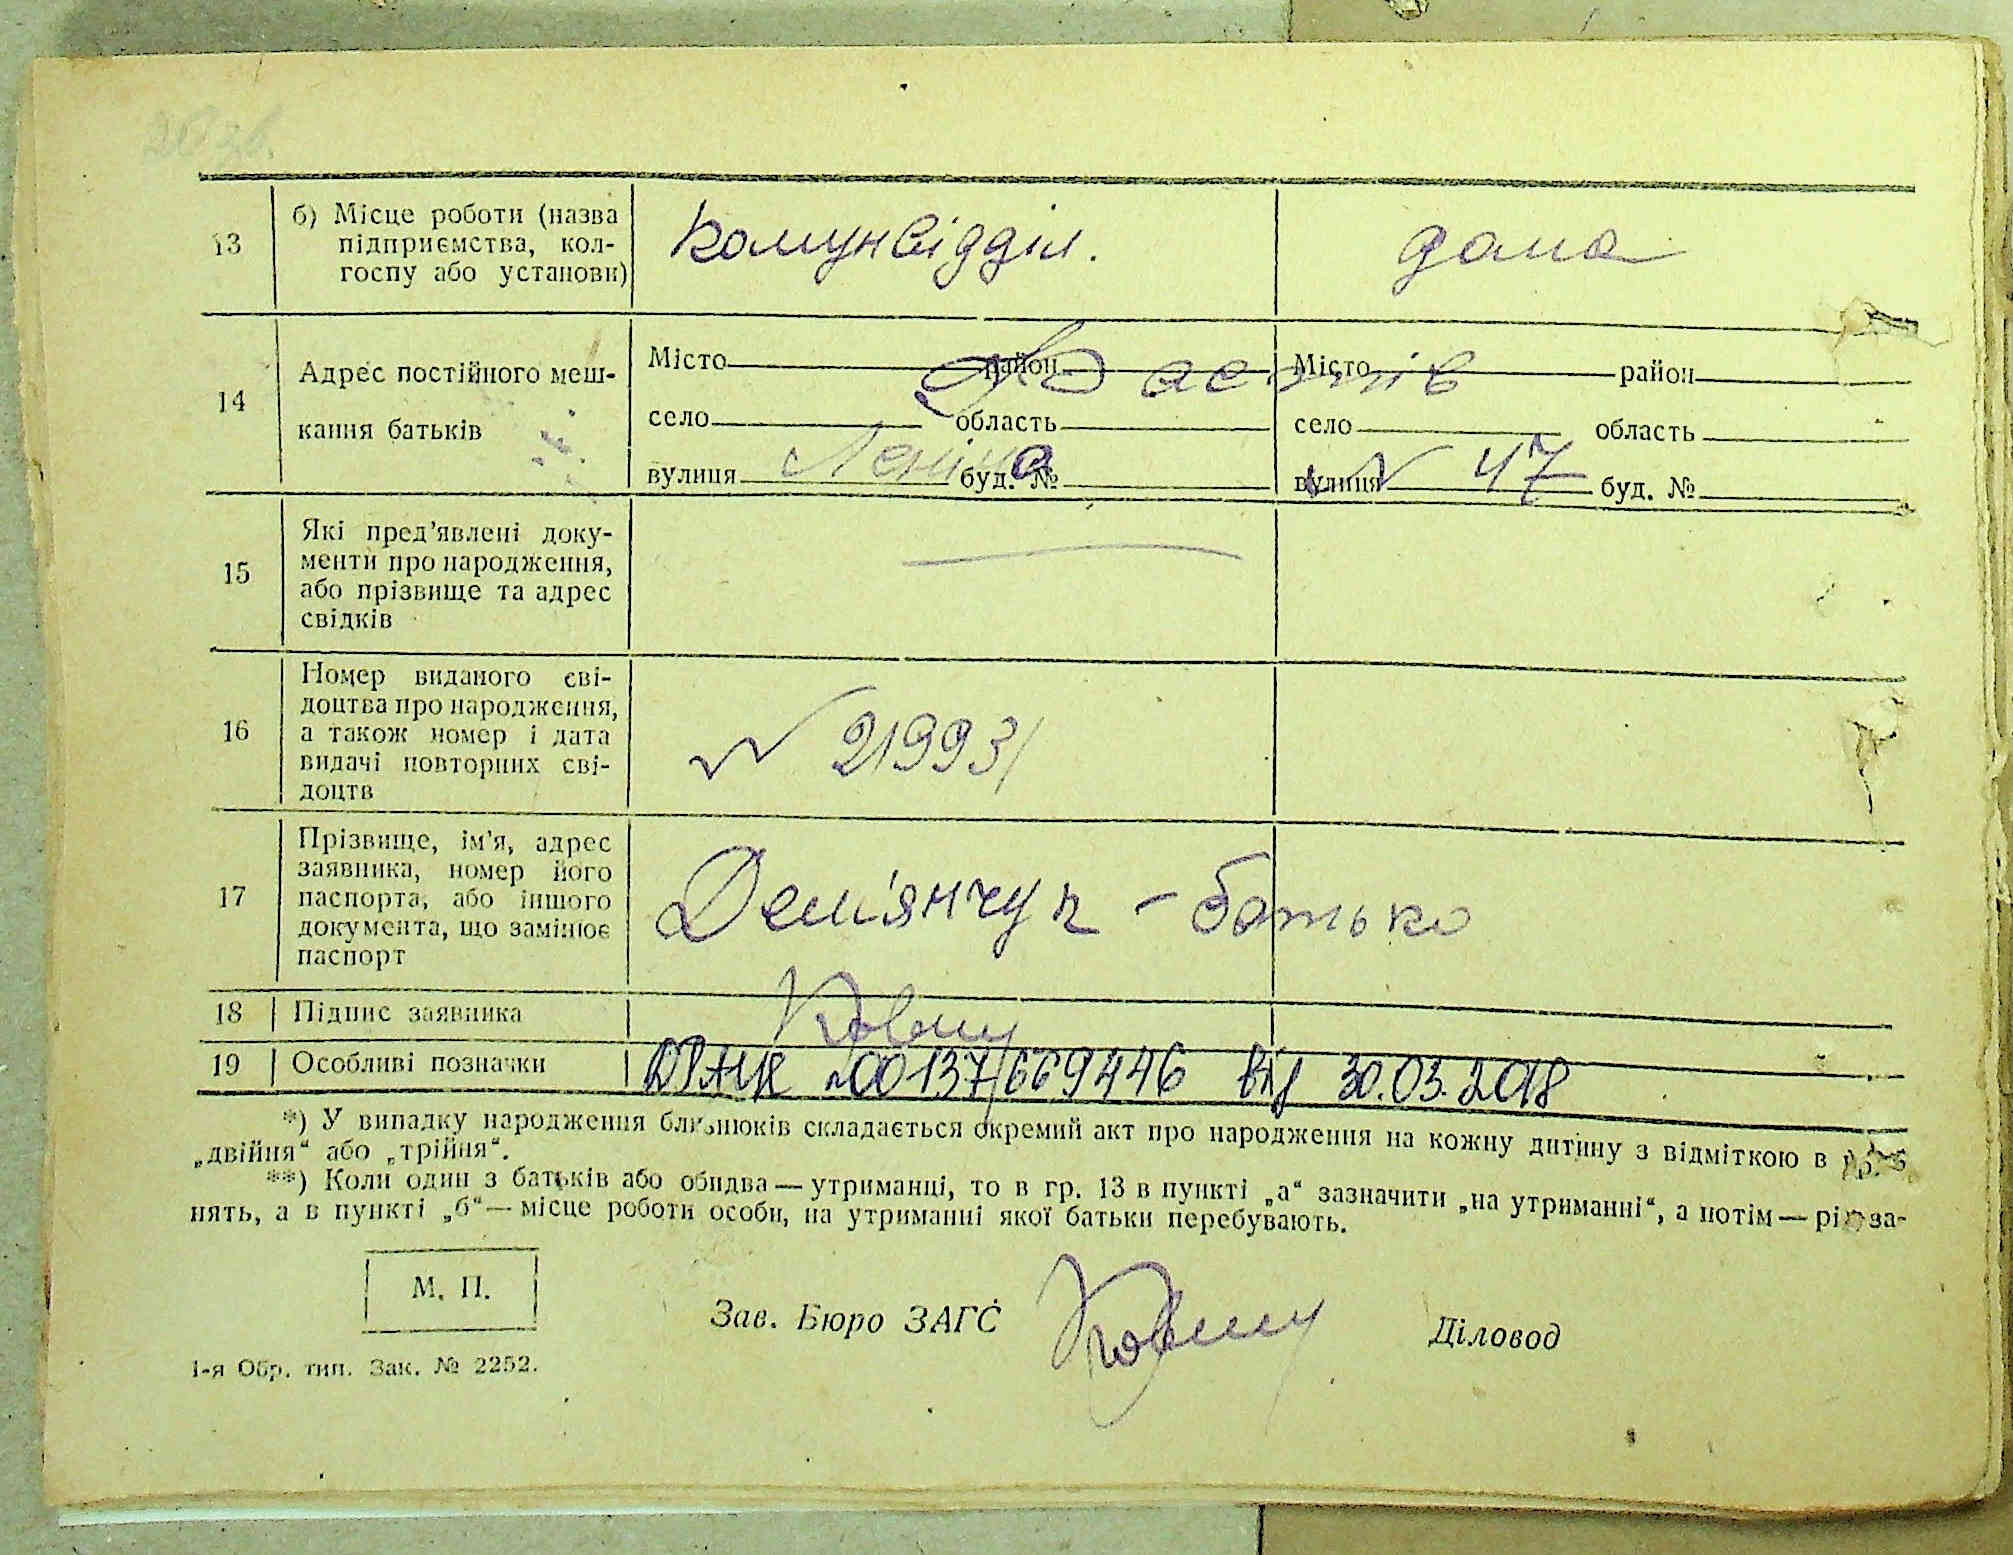 13
б) Місце роботи (назва
підприємства, кол-
госпу або установи)
комунвідділ.
дома
14
Адрес постійного меш-
кання батьків
Місто район
село область
вулиця Леніна буд. №
Місто район
село область
вулиця N 47 буд. №
Фастів
15
Які пред’явлені доку-
менти про народження,
або прізвище та адрес
свідків
16
Номер виданого сві-
доцтва про народження,
а також номер і дата
видачі повторних сві-
доцтв
N 21993/
17
Прізвище, ім’я, адрес
заявника, номер його
паспорта, або іншого
документа, що замінює
паспорт
Дем'янчук - батько
18 Підпис заявника
19 Особливі позначки
ДРАЦС №00137669446 від 30.03.2018
*) У випадку народження близнюків складається окремий акт про народження на кожну дитину з відміткою в
„двійня“ або „трійня“.
**) Коли один з батьків або обидва — утриманці, то в гр. 13 в пункті „а“ зазначити „на утриманні“, а потім — рід за-
нять, а в пункті „б“ — місце роботи особи, на утриманні якої батьки перебувають.
М. П.
Зав. Бюро ЗАГС
Діловод
1-я Обр. тип. Зак. № 2252.